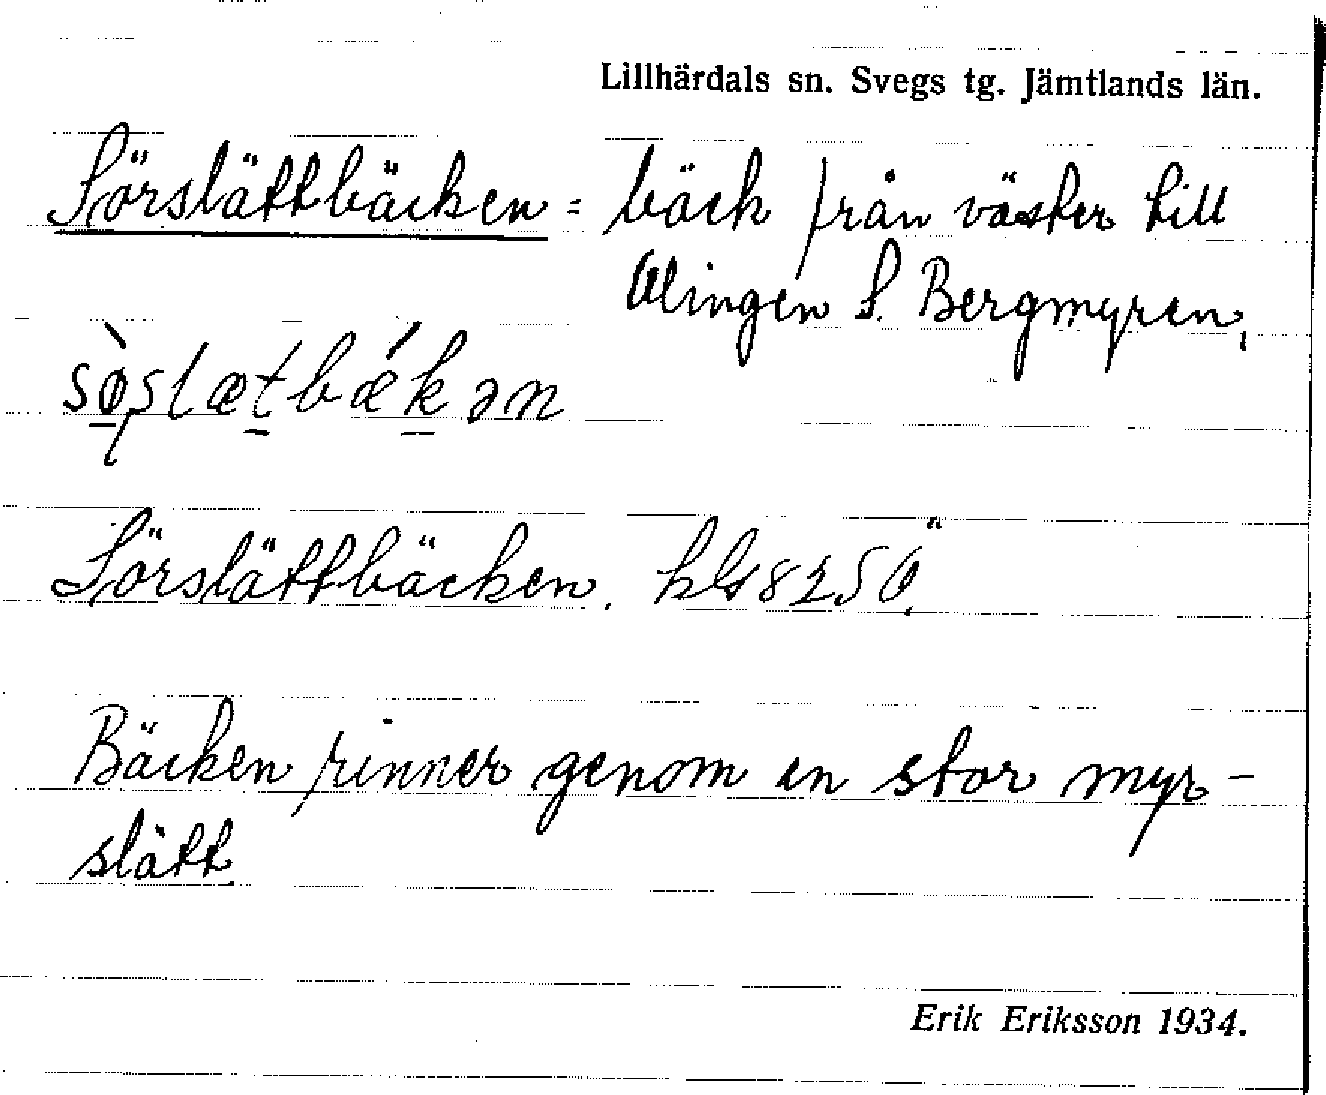 Lillhärdals sn. Svegs tg. Jämtlands län.
Sörslättbäcken = bäck från väster till
Olingen S. Bergmyren,
Sörslättbäcken.
Bäcken rinner genom en stor myr-
slätt
Erik Eriksson 1934.